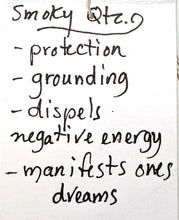 Smoky Qtz.
- protection
- grounding
- dispels
negative energy
- manifests ones
dreams